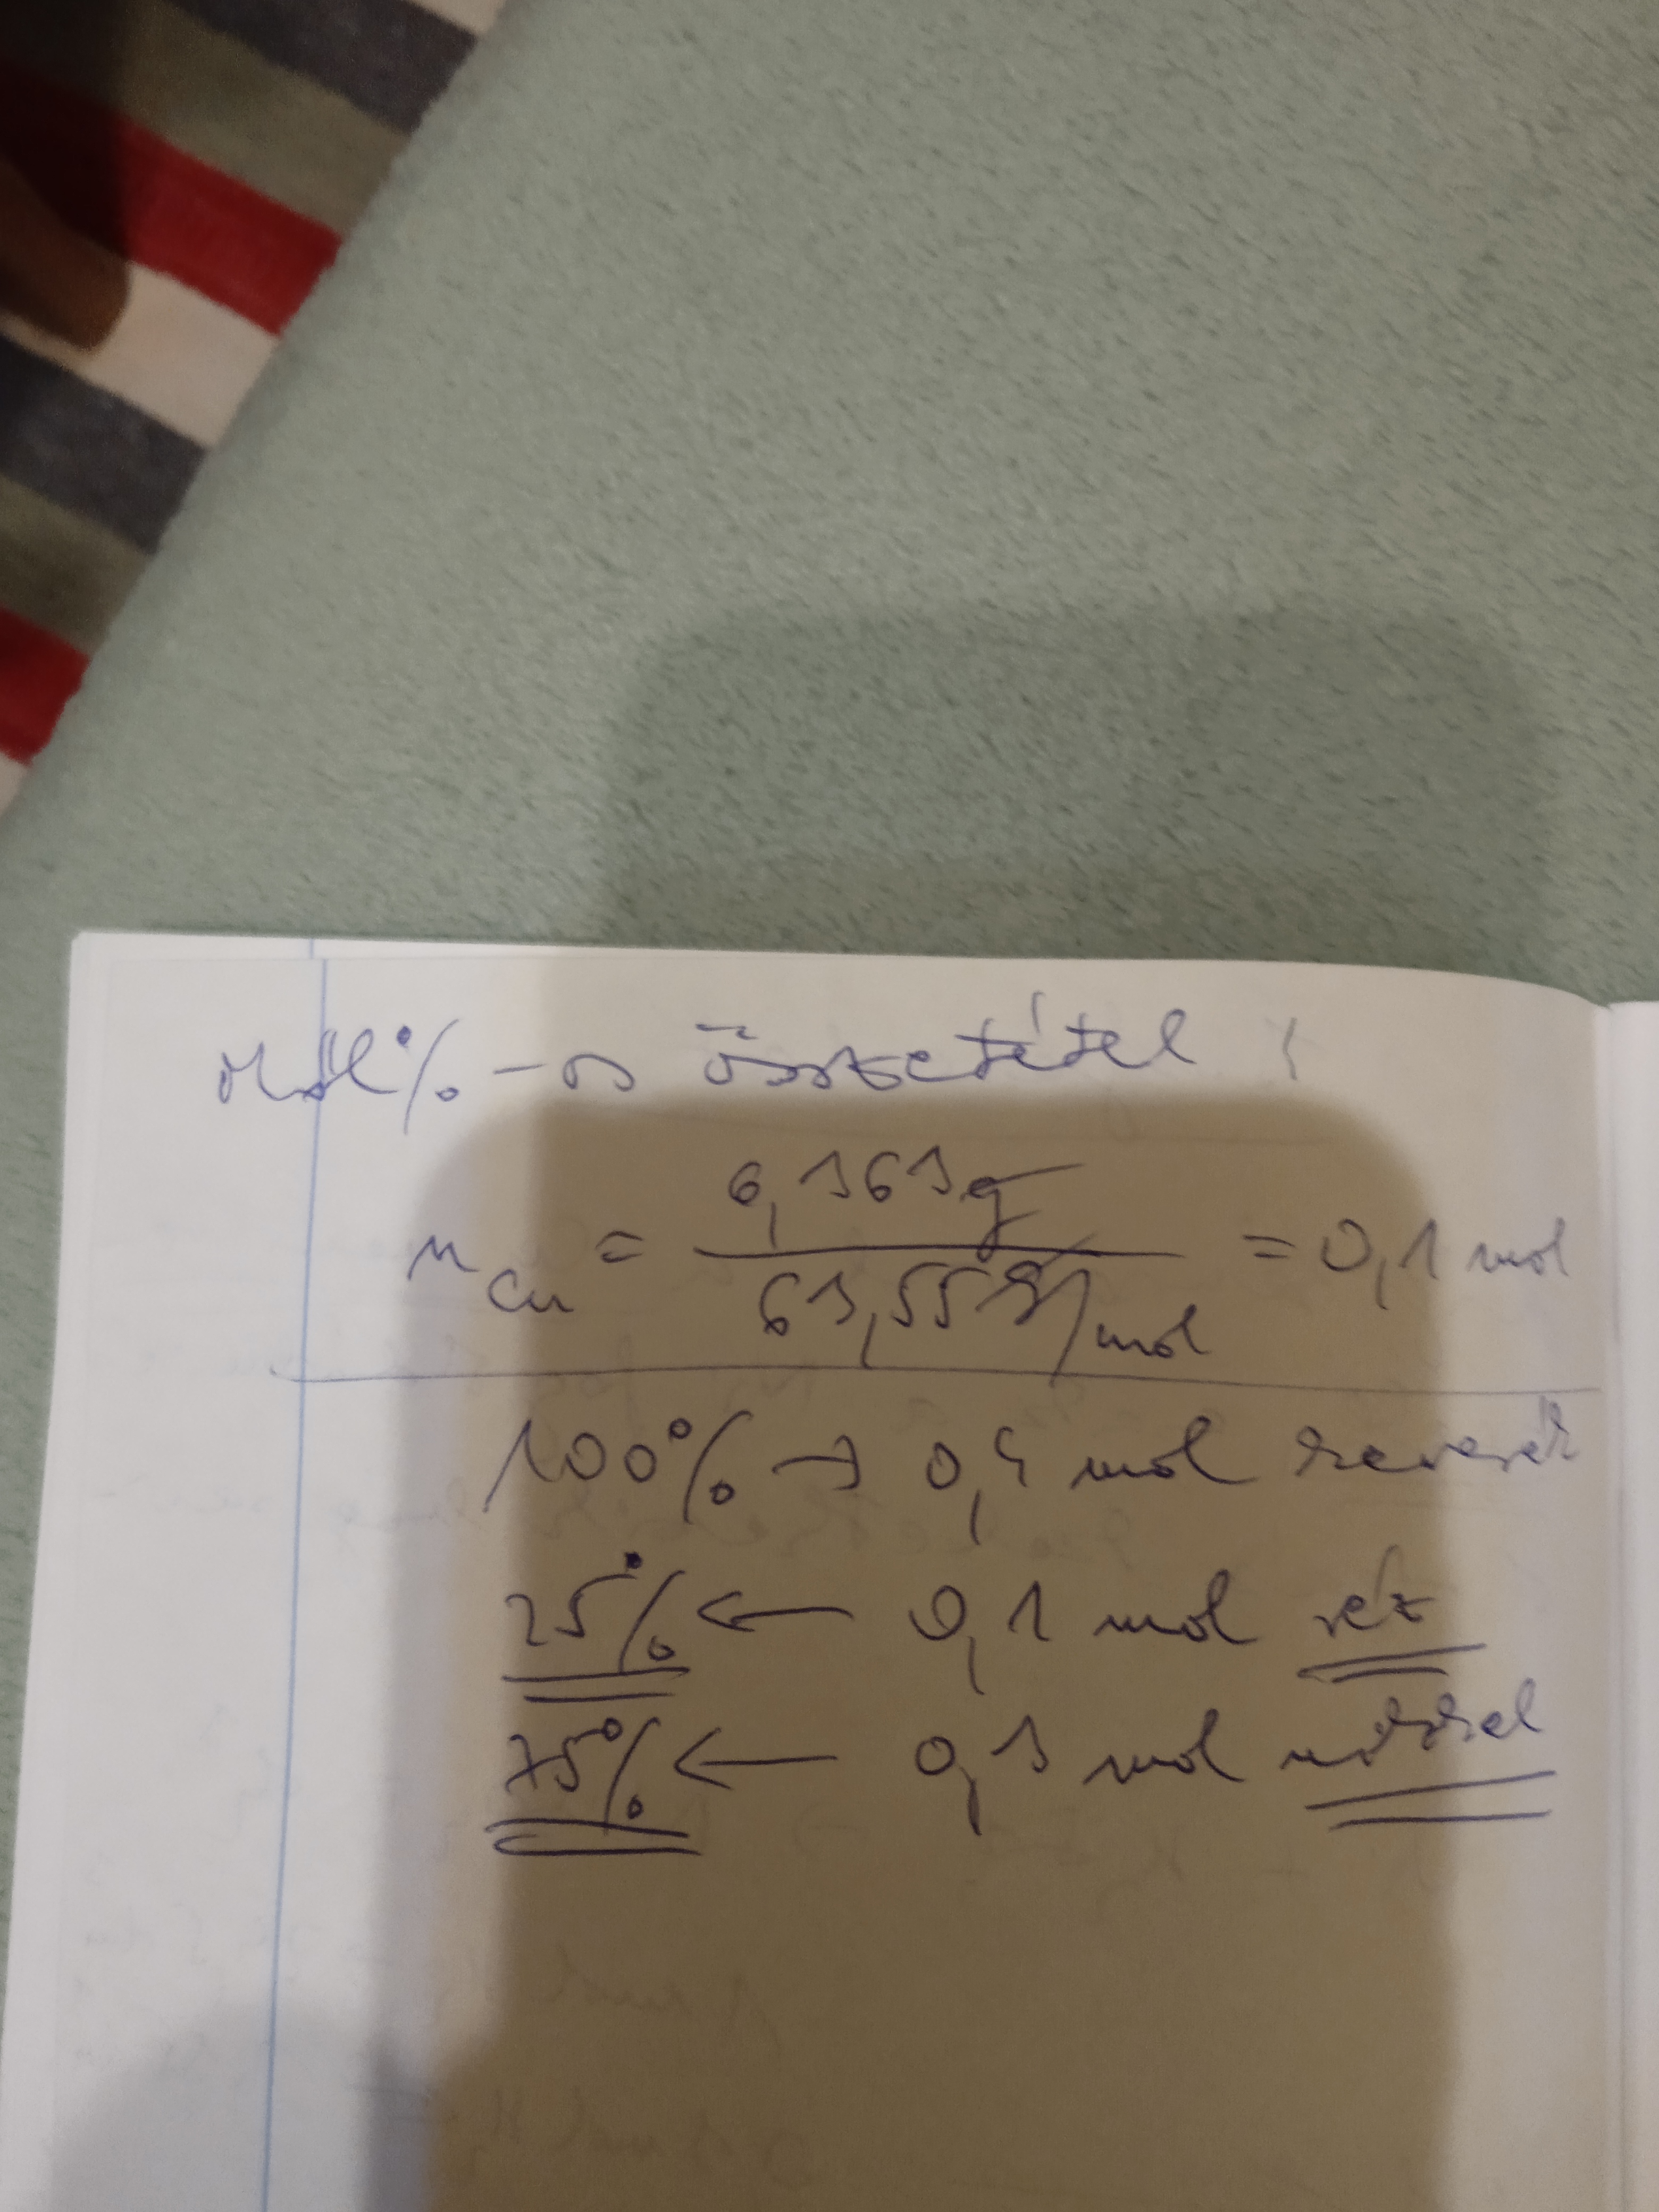 Mól%-os összetétel:
n Cu = 6,363g / 63,55 g/mol = 0,1 mol
100% → 0,4 mol keverék
25% ← 0,1 mol réz
75% ← 0,3 mol nikkel